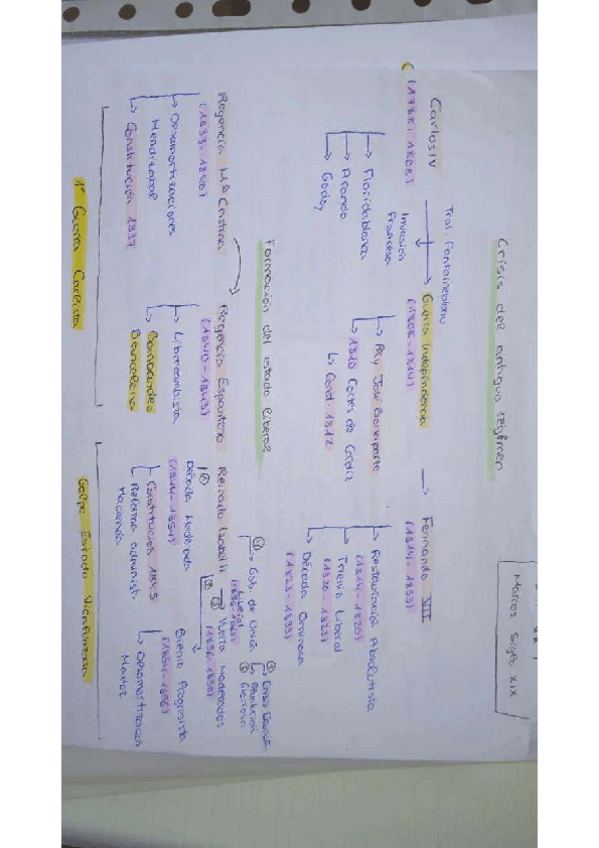 Marcos Siglo XIX
Crisis del antiguo régimen
Carlos IV
(1788-1808)
Trat. Fontainebleau
Invasión
Francesa
Guerra Independencia
(1808-1814)
Fernando VII
(1814-1833)
Floridablanca
Aranda
Godoy
Rey José Bonaparte
1810 Cortes de Cádiz
Const. 1812
Restauración Absolutista
(1814-1820)
Trienio Liberal
(1820-1823)
Década Ominosa
(1823-1833)
Formación del estado liberal
Regencia Mª Cristina
(1833-1840)
Desamortizaciones
Mendizábal
Constitución 1837
Regencia Espartero
(1840-1843)
Librecambista
Bombardeo
Barcelona
Reinado Isabel II
① Década Moderada
(1844-1854)
Constitución 1845
Reforma administ.
Hacienda
② Bienio Progresista
(1854-1856)
Desamortización
Madoz
③ Vuelta Moderados
(1856-1858)
④ Gob. de Unión
Liberal
⑤ Crisis
1ª Guerra Carlista
Golpe Estado Vicalvarada